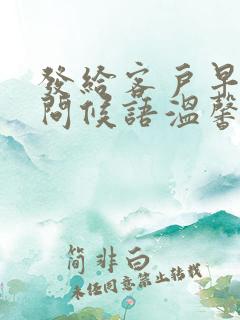 發給客戶早
問候語溫馨
简非白
未经同意禁止转载